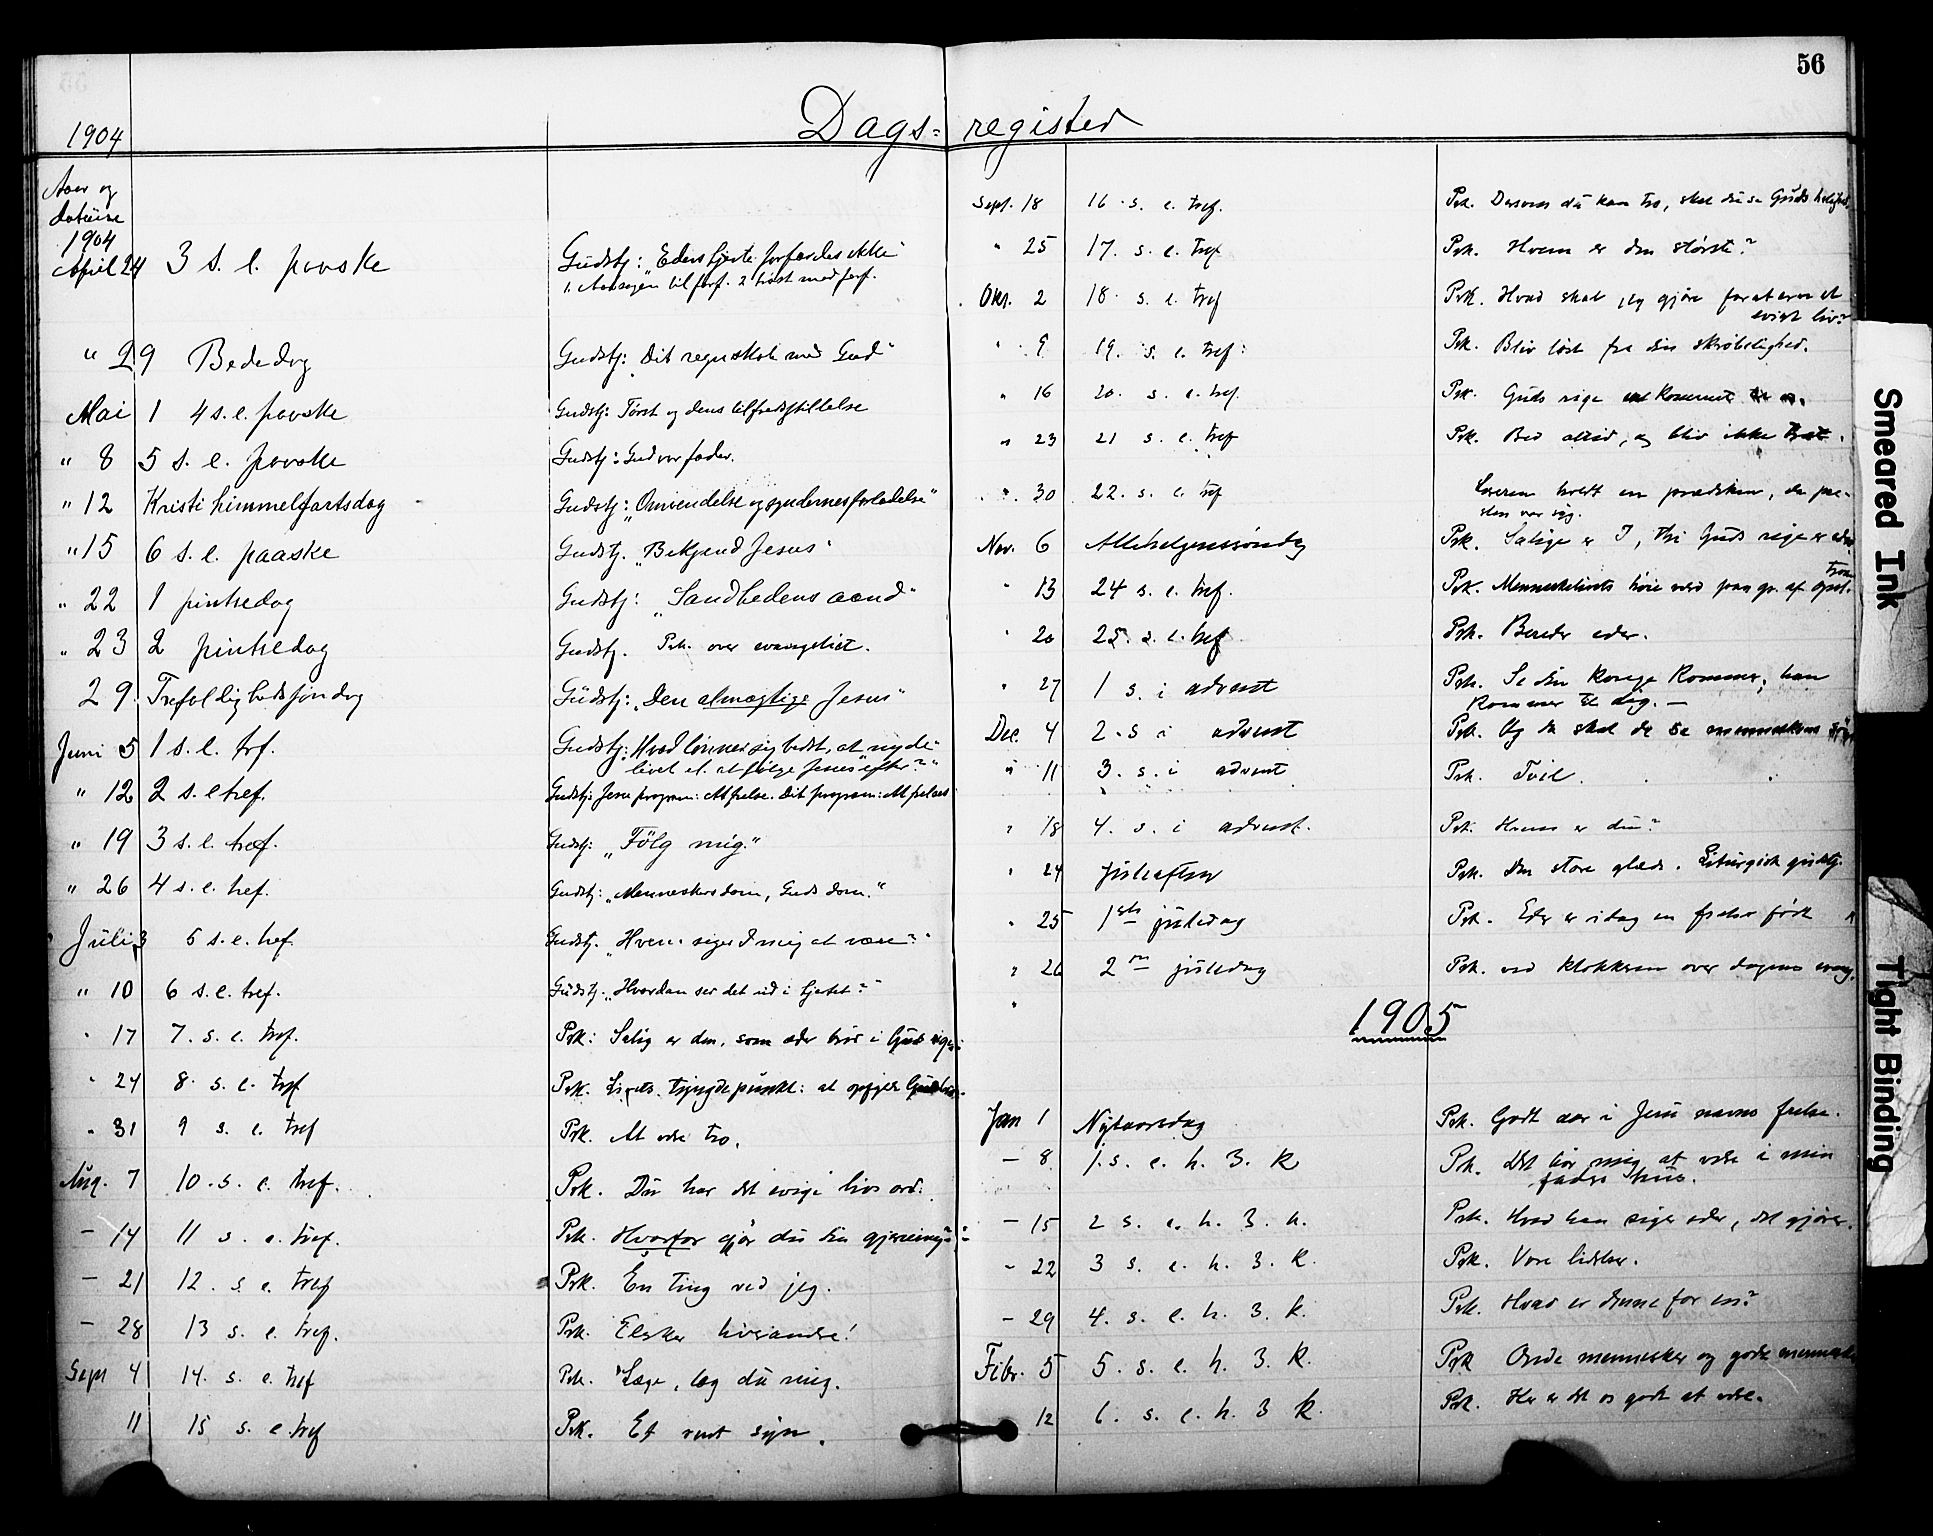 56
Dags-register
1904
Aar og
datum
1904
April 24 3 s. e. paaske Gudstj: „Eders hjerte forfærdes ikke“
1. Aarsagen til forf. 2 trøst mod forf.
" 29 Bededag Gudstj: „Dit regnskab med Gud“
Mai 1 4 s. e. paaske Gudstj: Tørst og dens tilfredsstillelse
" 8 5 s. e. paaske Gudstj: Gud vor fader.
" 12 Kristi himmelfartsdag Gudstj: „Omvendelse og syndernes forladelse“
" 15 6 s. e. paaske Gudstj. „Bekjend Jesus“
" 22 1 pintsedag Gudstj: „Sandhedens aand“
" 23 2 pintsedag Gudstj. Prk. over evangeliet.
29 Trefoldighedssøndag Gudstj: „Den almægtige Jesus“
Juni 5 1 s. e. trf. Gudstj: „Hvad lønner sig bedst, at nyde
livet el. at følge Jesus efter?“
" 12 2 s. e tref. Gudstj: Jesu program: At frelse. Dit program: At frelses
" 19 3 s. e. tref. Gudstj: „Følg mig.“
" 26 4 s. e. tref. Gudstj: „Menneskers dom, Guds dom.“
Juli 3 5 s. e. tref. Gudstj. „Hvem siger I mig at være?“
" 10 6 s. e. tref. Gudstj. „Hvordan ser det ud i hjertet?“
" 17 7. s. e. tref. Prk: Salig er den, som æder brød i Guds rige.
" 24 8. s. e. tref Prk. Livets tyngdepunkt: at opfylde Guds
" 31 9 s. e. tref Prk. At være tro.
Aug. 7 10. s. e. tref. Prk. Du har det evige livs ord.
– 14 11 s. e. tref. Prk. Hvorfor gjør du din gjerning?
– 21 12. s. e. tref Prk. En ting ved jeg.
– 28 13 s. e. tref. Prk. Elsker hverandre!
Sept 4 14. s. e. tref Prk. Læge, læg du mig.
11 15 s. e. tref Prk. Et rent syn.
Sept. 18 16. s. e. tref. Prk. Dersom du kan tro, skal du se Guds herlighed.
" 25 17. s. e. tref Prk. Hvem er den største?
Okt. 2 18. s. e. tref Prk. Hvad skal jeg gjøre for at arve et
evigt liv?
" 9 19. s. e. tref: Prk. Bliv løst fra din skrøbelighed.
" 16 20. s. e. tref. Prk. Guds rige kommet
" 23 21 s. e. tref Prk. Bed altid, og bliv ikke træt.
" 30 22. s. e. tref Læreren holdt en prædiken, da pre-
sten var syg.
Nov. 6 Allehelgenssøndag Prk. Salige er I, thi Guds rige er eders
" 13 24 s. e. tref. Prk. Menneskelivets høie værd paa gr. af opst. troen
" 20 25. s. e. tref Prk. Bereder eder.
" 27 1 s. i advent Prk. Se din konge kommer, han
kommer til dig. —
Dec. 4 2. s i advent Prk. Og da skal de se menneskens søn
" 11 3. s. i advent Prk. Tvil.
" 18 4. s. i advent. Prk. Hvem er du?
" 24 Juleaften Prk. Den store glæde. Liturgisk gudstj.
" 25 1ste juledag Prk. Eder er idag en frelser født
" 26 2den juledag Prk. ved klokkeren over dagens evang.
"
1905
Jan 1 Nytaarsdag Prk. Godt aar i Jesu navns frelse.
– 8 1. s. e. h. 3. k Prk. Det bør mig at være i min
faders hus.
– 15 2 s. e. h. 3. k. Prk. Hvad han siger eder, det gjører.
– 22 3 s. e. h. 3. k. Prk. Vore lidelser.
– 29 4. s. e. h. 3. k. Prk. Hvad er denne for en?
Febr. 5 5. s. e. h. 3. k. Prk Onde mennesker og gode mennesker
12 6. s. e. h. 3 k. Prk. Her er det os godt at være.
Smeared Ink
Tight Binding